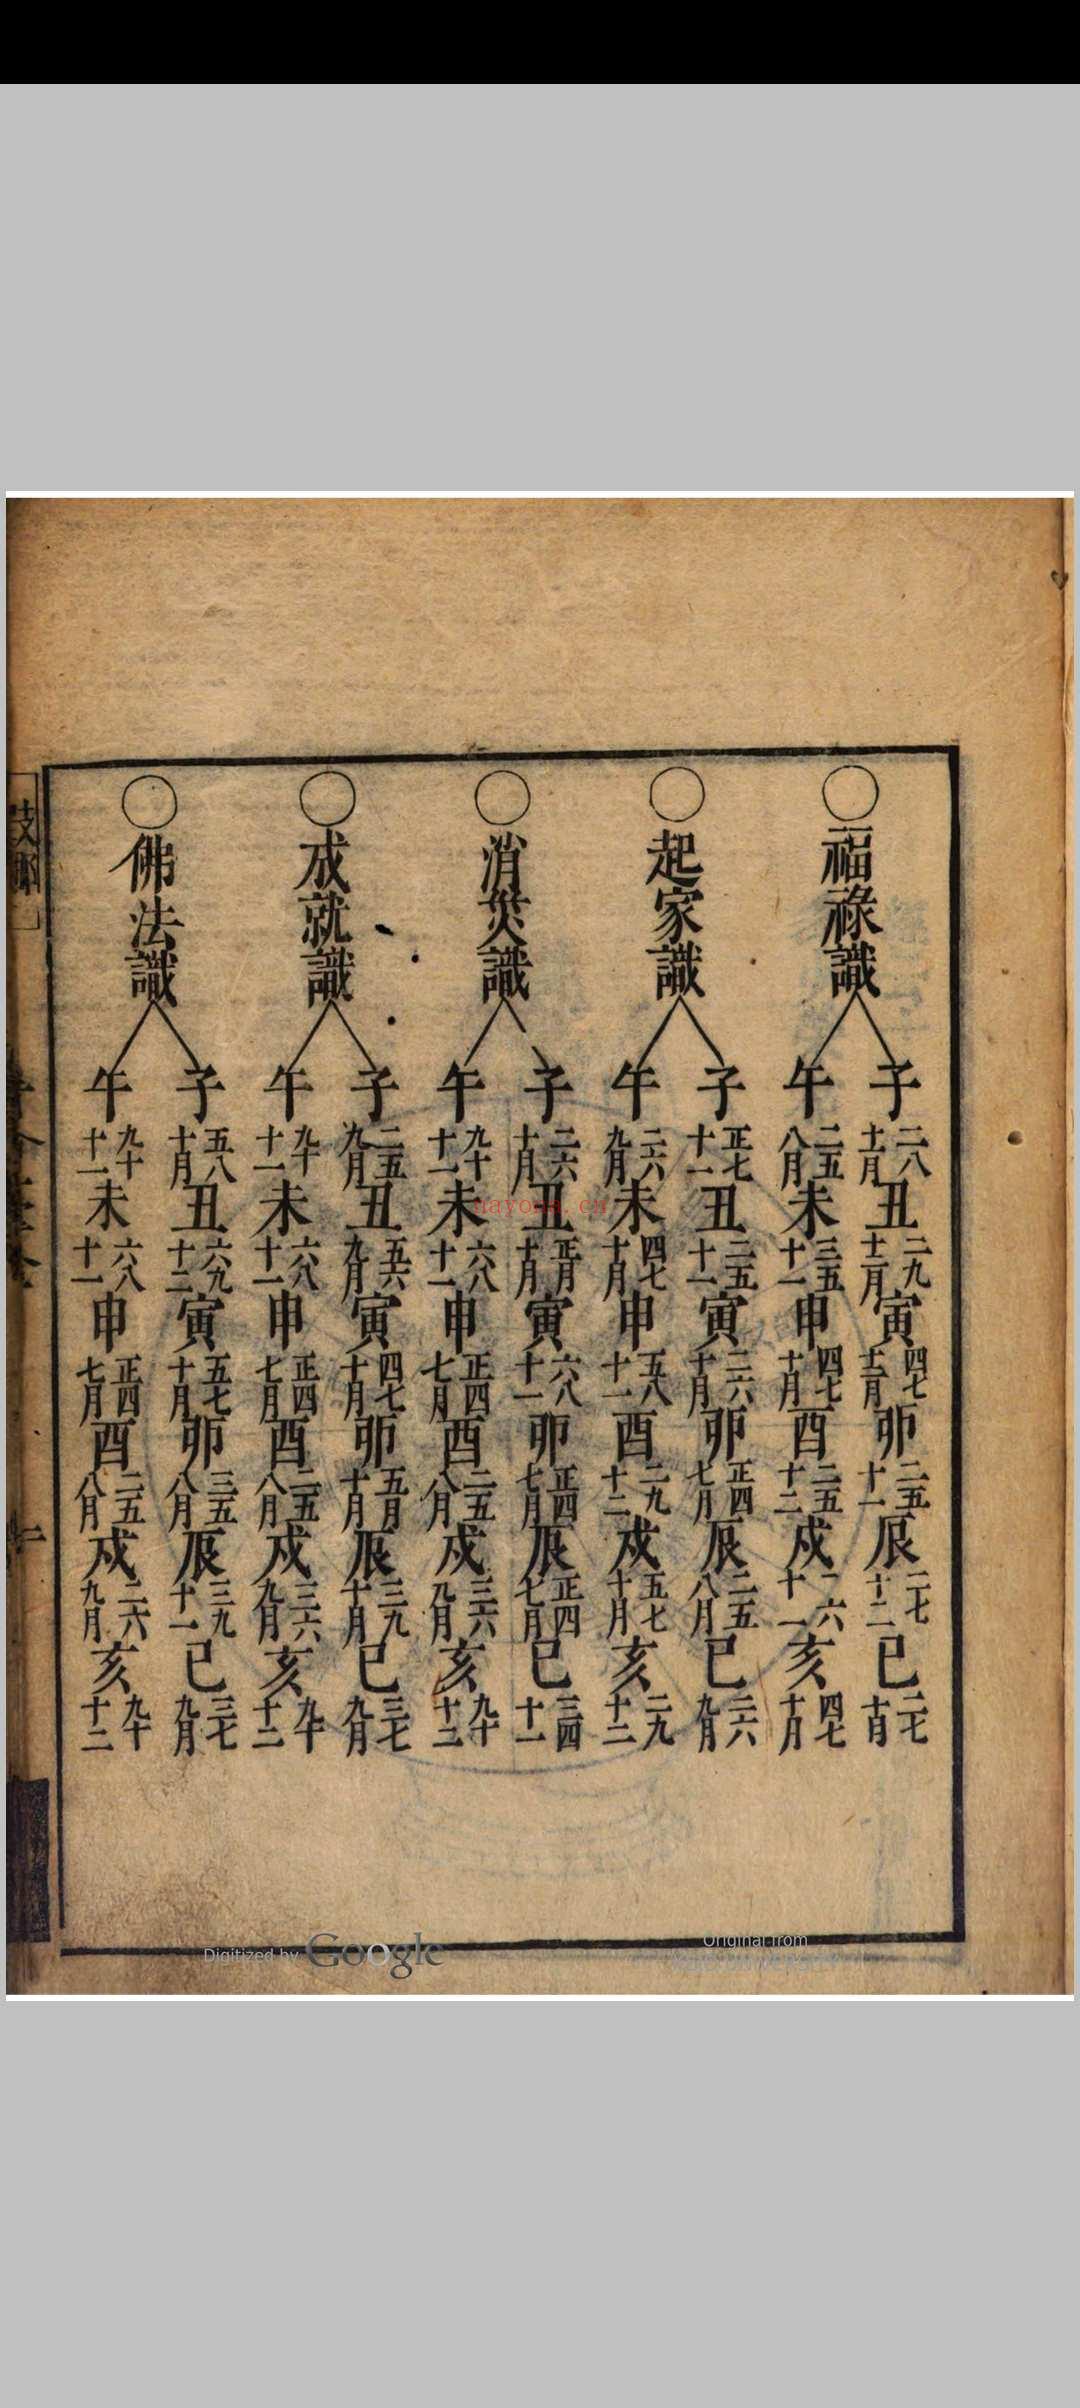 ○福祿識
子二八十一月丑二九十二月寅四七十一月卯二五十一辰二七十二巳二七
午二五八月未三五十一申四七十月酉二五十二戍二六十一亥四七十月
○起家識
子正七十一丑二五十一寅二六十月卯正四七月辰二五八月巳二六九月
午二六九月未四七十月申五八十一酉二九十二戍五七十月亥二九十二
○消災識
子二六十月丑正月十月寅六八十一卯正四七月辰正四七月巳三四十一
午九十十一未六八十一申正四七月酉二五八月戍三六九月亥九十十二
○成就識
子二五九月丑五六九月寅四七十月卯五月十月辰三九十月巳三七九月
午九十十一未六八十一申正四七月酉二五八月戍三六九月亥九十十二
○佛法識
子五八十月丑六九十二寅五七十月卯三五八月辰三九十一巳三七九月
午九十十一未六八十一申正四七月酉二五八月戍二六九月亥九十十二
nayona.cn
Digitized by Google
Original from